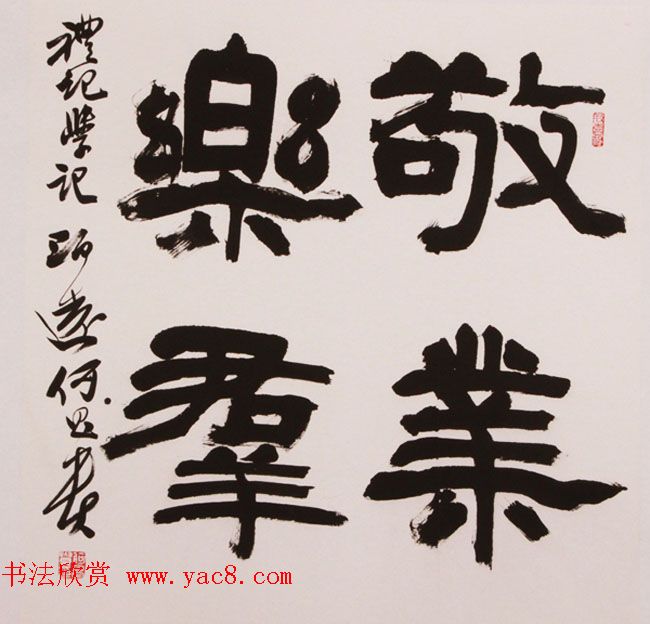 敬業
樂羣
禮記學記
书法欣赏 www.yac8.com